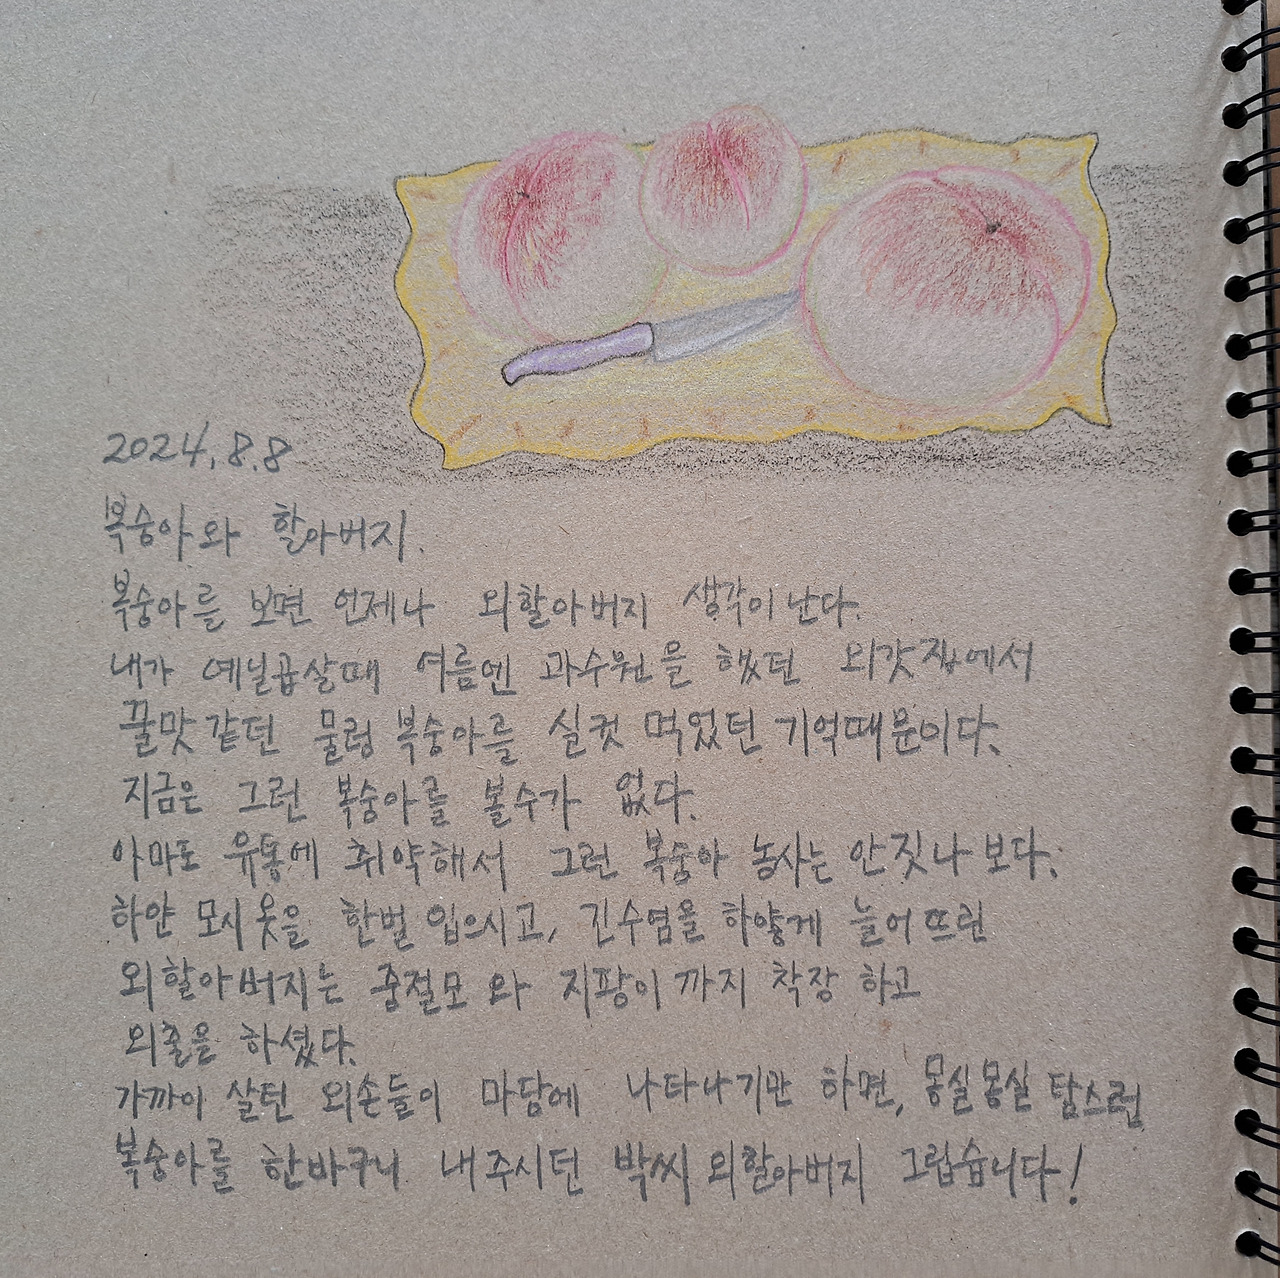 2024.8.8
복숭아와 할아버지.
복숭아를 보면 언제나 외할아버지 생각이 난다.
내가 예닐곱살때 여름엔 과수원을 했던 외갓집에서
꿀맛 같던 물렁 복숭아를 실컷 먹었던 기억때문이다.
지금은 그런 복숭아를 볼수가 없다.
아마도 유통에 취약해서 그런 복숭아 농사는 안짓나보다.
하얀 모시옷을 한벌 입으시고, 긴수염을 하얗게 늘어뜨린
외할아버지는 중절모 와 지팡이 까지 착장 하고
외출을 하셨다.
가까이 살던 외손들이 마당에 나타나기만 하면, 몽실몽실 탐스런
복숭아를 한바구니 내주시던 박씨 외할아버지 그립습니다!